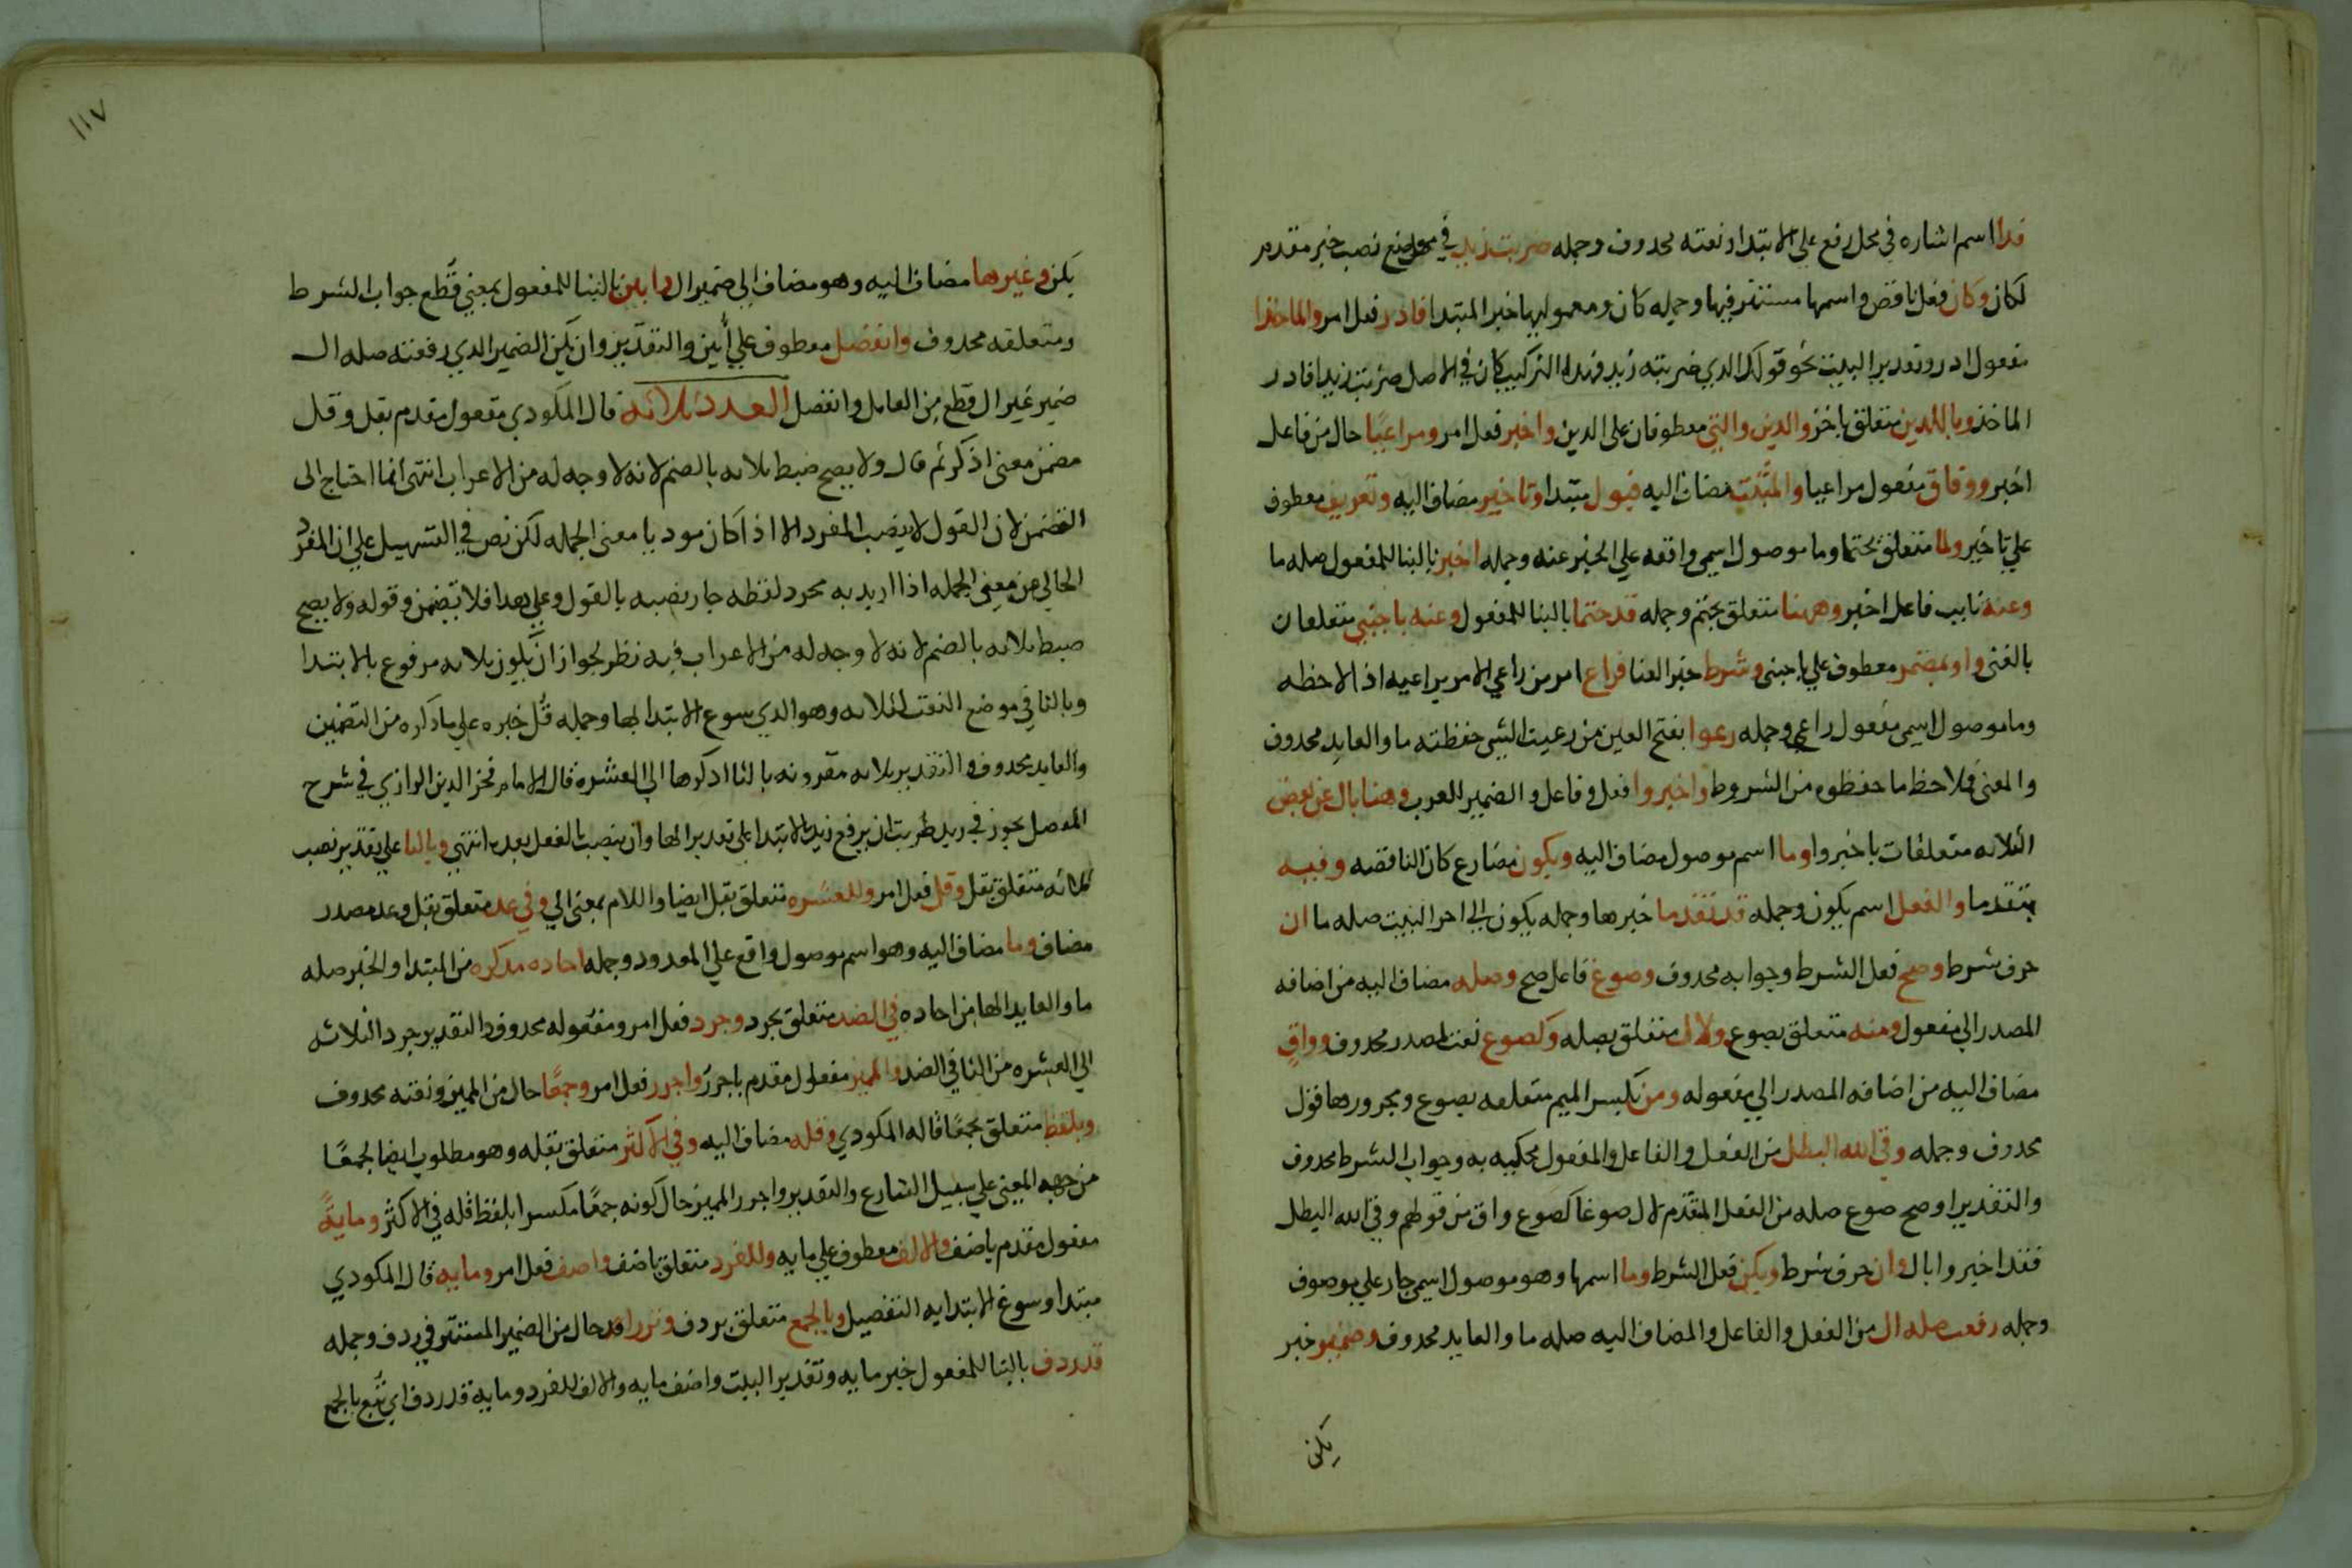 فذا اسم اشاره في محل رفع علي الابتدا ونعته محدوف وجمله ضربت زيد في موضع نصب خبر مقدم
لكان وكان فعل ناقص واسمها مستتر فيها وجمله كان ومعموليها خبر المبتدا فادر فعل امر والماخذا
مفعول ادر وتقدير البيت نحو قولك الدي ضربته زيد فهذا التركيب كان في الاصل ضربت زيدا فادر
الماخذ وباللدين متعلق باخبر والدين والتي معطوفان على الدين واخبر فعل امر ومراعيًا حال من فاعل
اخبر ووفاق مفعول مراعيا والمثبت مضاف اليه قبول مبتدا وتاخير مضاف اليه وتعريف معطوف
علي تاخير ولما متعلق بحتما وما موصول اسمي واقعه علي المخبر عنه وجمله اخبر بالبنا للمفعول صله ما
وعنه نايب فاعل اخبر وههنا متعلق بحتم وجمله قد حتما بالبنا للمفعول وعنه باجنبي متعلقان
بالغنى واو بمضمر معطوف علي باجنبي وشرط خبر الغنا فراع امر من راعي الامر يراعيه اذا لاحظه
وما موصول اسمي مفعول راعي وجمله رعوا بفتح العين من رعيت الشي حفظته ما والعايد محدوف
والمعنى فلاحظ ما حفظوه من الشروط واخبروا فعل وفاعل والضمير للعرب وهنا بال عن بعض
الثلاثه متعلقات باخبروا وما اسم موصول مضاف اليه ويكون مضارع كان الناقصه وفيه
بتقدما والفعل اسم يكون وجمله قد تقدما خبرها وجمله يكون الي اخر البيت صله ما ان
حرف شرط وصح فعل الشرط وجوابه محدوف وصوغ فاعل صح وصله مضاف اليه من اضافه
المصدر الي مفعول ومنه متعلق بصوع ولال متعلق بصله وكصوع نعت لمصدر محدوف وواق
مضاف اليه من اضافه المصدر الي مفعوله ومن بكسر الميم متعلقه بصوع ومجرورها قول
محدوف وجمله وقي الله البطل من الفعل والفاعل والمفعول محكيه به وجواب الشرط محدوف
والتقدير او صح صوع صله من الفعل المقدم لال صوغا كصوع واق من قولهم وقي الله البطل
فقد اخبروا بال وان حرف شرط ويكن فعل الشرط وما اسمها وهو موصول اسمي جار علي موصوف
وجمله رفعت صله ال من الفعل والفاعل والمضاف اليه صله ما والعايد محدوف وضمير خبر
يكن
١١٧
يكن وغيرها مضاف اليه وهو مضاف الي ضمير ال وابين بالبنا للمفعول بمعني قطع جواب الشرط
ومتعلقه محدوف وانفصل معطوف علي أبين والتقدير وان يكن الضمير الدي رفعته صله ال
ضمير غير ال قطع من العامل وانفصل العدد ثلاثه قال المكودي مفعول مقدم بقل وقل
مضمن معنى اذكر ثم قال ولا يصح ضبط ثلاثه بالضم لانه لا وجه له من الاعراب انتهى انما احتاج الى
التضمن لان القول لا ينصب المفرد الا اذا كان موديا معنى الجمله لكن نص في التسهيل علي ان المفرد
الخالي من معني الجمله اذا اريد به مجرد لفظه جاز نصبه بالقول وعلي هدا فلا تضمن وقوله ولا يصح
ضبط ثلاثه بالضم لانه لا وجه له من الاعراب فيه نظر لجواز ان يكون ثلاثه مرفوع بالابتدا
وبالتا في موضع النعت لثلاثه وهو الدي سوع الابتدا بها وجمله قل خبره علي ما ذكره من التضمين
والعايد محدوف والتقدير ثلاثه مقرونه بالتا ادكرها الي العشره قال الامام فخر الدين الرازي في شرح
المفصل يجوز في زيد ضربت ان يرفع زيد بالابتدا علي تقدير الها وان ينصب بالفعل بعده انتهي وبالتا علي تقدير نصب
ثلاثه متعلق بقل وقل فعل امر وللعشره متعلق بقل ايضا واللام بمعنى الي وفي عد متعلق بقل وعد مصدر
مضاف وما مضاف اليه وهو اسم موصول واقع علي المعدود وجمله احاده مذكره من المبتدا والخبر صله
ما والعايد الها من احاده في الضد متعلق بجرد وجرد فعل امر ومفعوله محدوف والتقدير جرد الثلاثه
الي العشره من التا في الضد والمميز مفعول مقدم باجرر واجرر فعل امر وجمعًا حال من المميز ونعته محدوف
وبلفظ متعلق بجمعًا قاله المكودي وقله مضاف اليه وفي الاكثر متعلق بقله وهو مطلوب ايضا لجمعًا
من جهه المعني علي سبيل التنازع والتقدير واجرر المميز حال كونه جمعًا مكسرا بلفظ قله في الاكثر ومايةً
مفعول مقدم باضف والالف معطوف علي مايه وللفرد متعلق باضف واضف فعل امر ومايه قال المكودي
مبتدا وسوغ الابتدا به التفصيل وبالجمع متعلق بردف ونزرا قد حال من الضمير المستتر في ردف وجمله
قد ردف بالبنا للمفعول خبر مايه وتقدير البيت واضف مايه والالف للفرد ومايه قد ردف اي تبع بالجمع